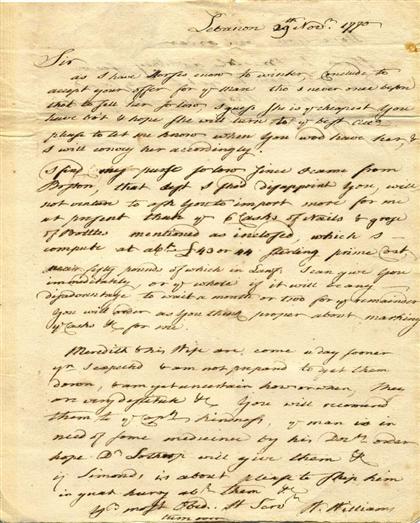 Lebanon 29th Novr. 1770
Sir
as I have Horses enow to winter, Conclude to
accept your offer for ye Mare tho I never once before
that to sell her so low, I guess she is ye cheapest you
have bot & hope she will turn to ye best
please to let me know when you wod have her, &
I will convey her accordingly
I find my purse so low since I came from
Boston, that lest I shod disappoint you, will
not venture to ask you to import more for me
at present than ye 6 Casks of Nails & groze
of Bottles mentioned as inclosed, which I
compute at abt. £43 or 44 sterling prime Cost
near fifty pound of which in Lawf. I can give you
immediately, or ye whole if it will be any
disadvantage to wait a month or two for ye remainder
You will order as you think proper about marking
ye casks &c for me
Meredith & his Wife are come a day sooner
yn I expected & am not prepared to get them
down, & am yet uncertain how or when, They
are very destitute & You will recommend
them to ye Capts. kindness, ye man is in
need of some medicine by his Doctrs. order
hope Dr. will give them &
if Simonds is about please to ship him
in great hurry abt. them &c
yr. most Obed. H Servt.
W. Williams